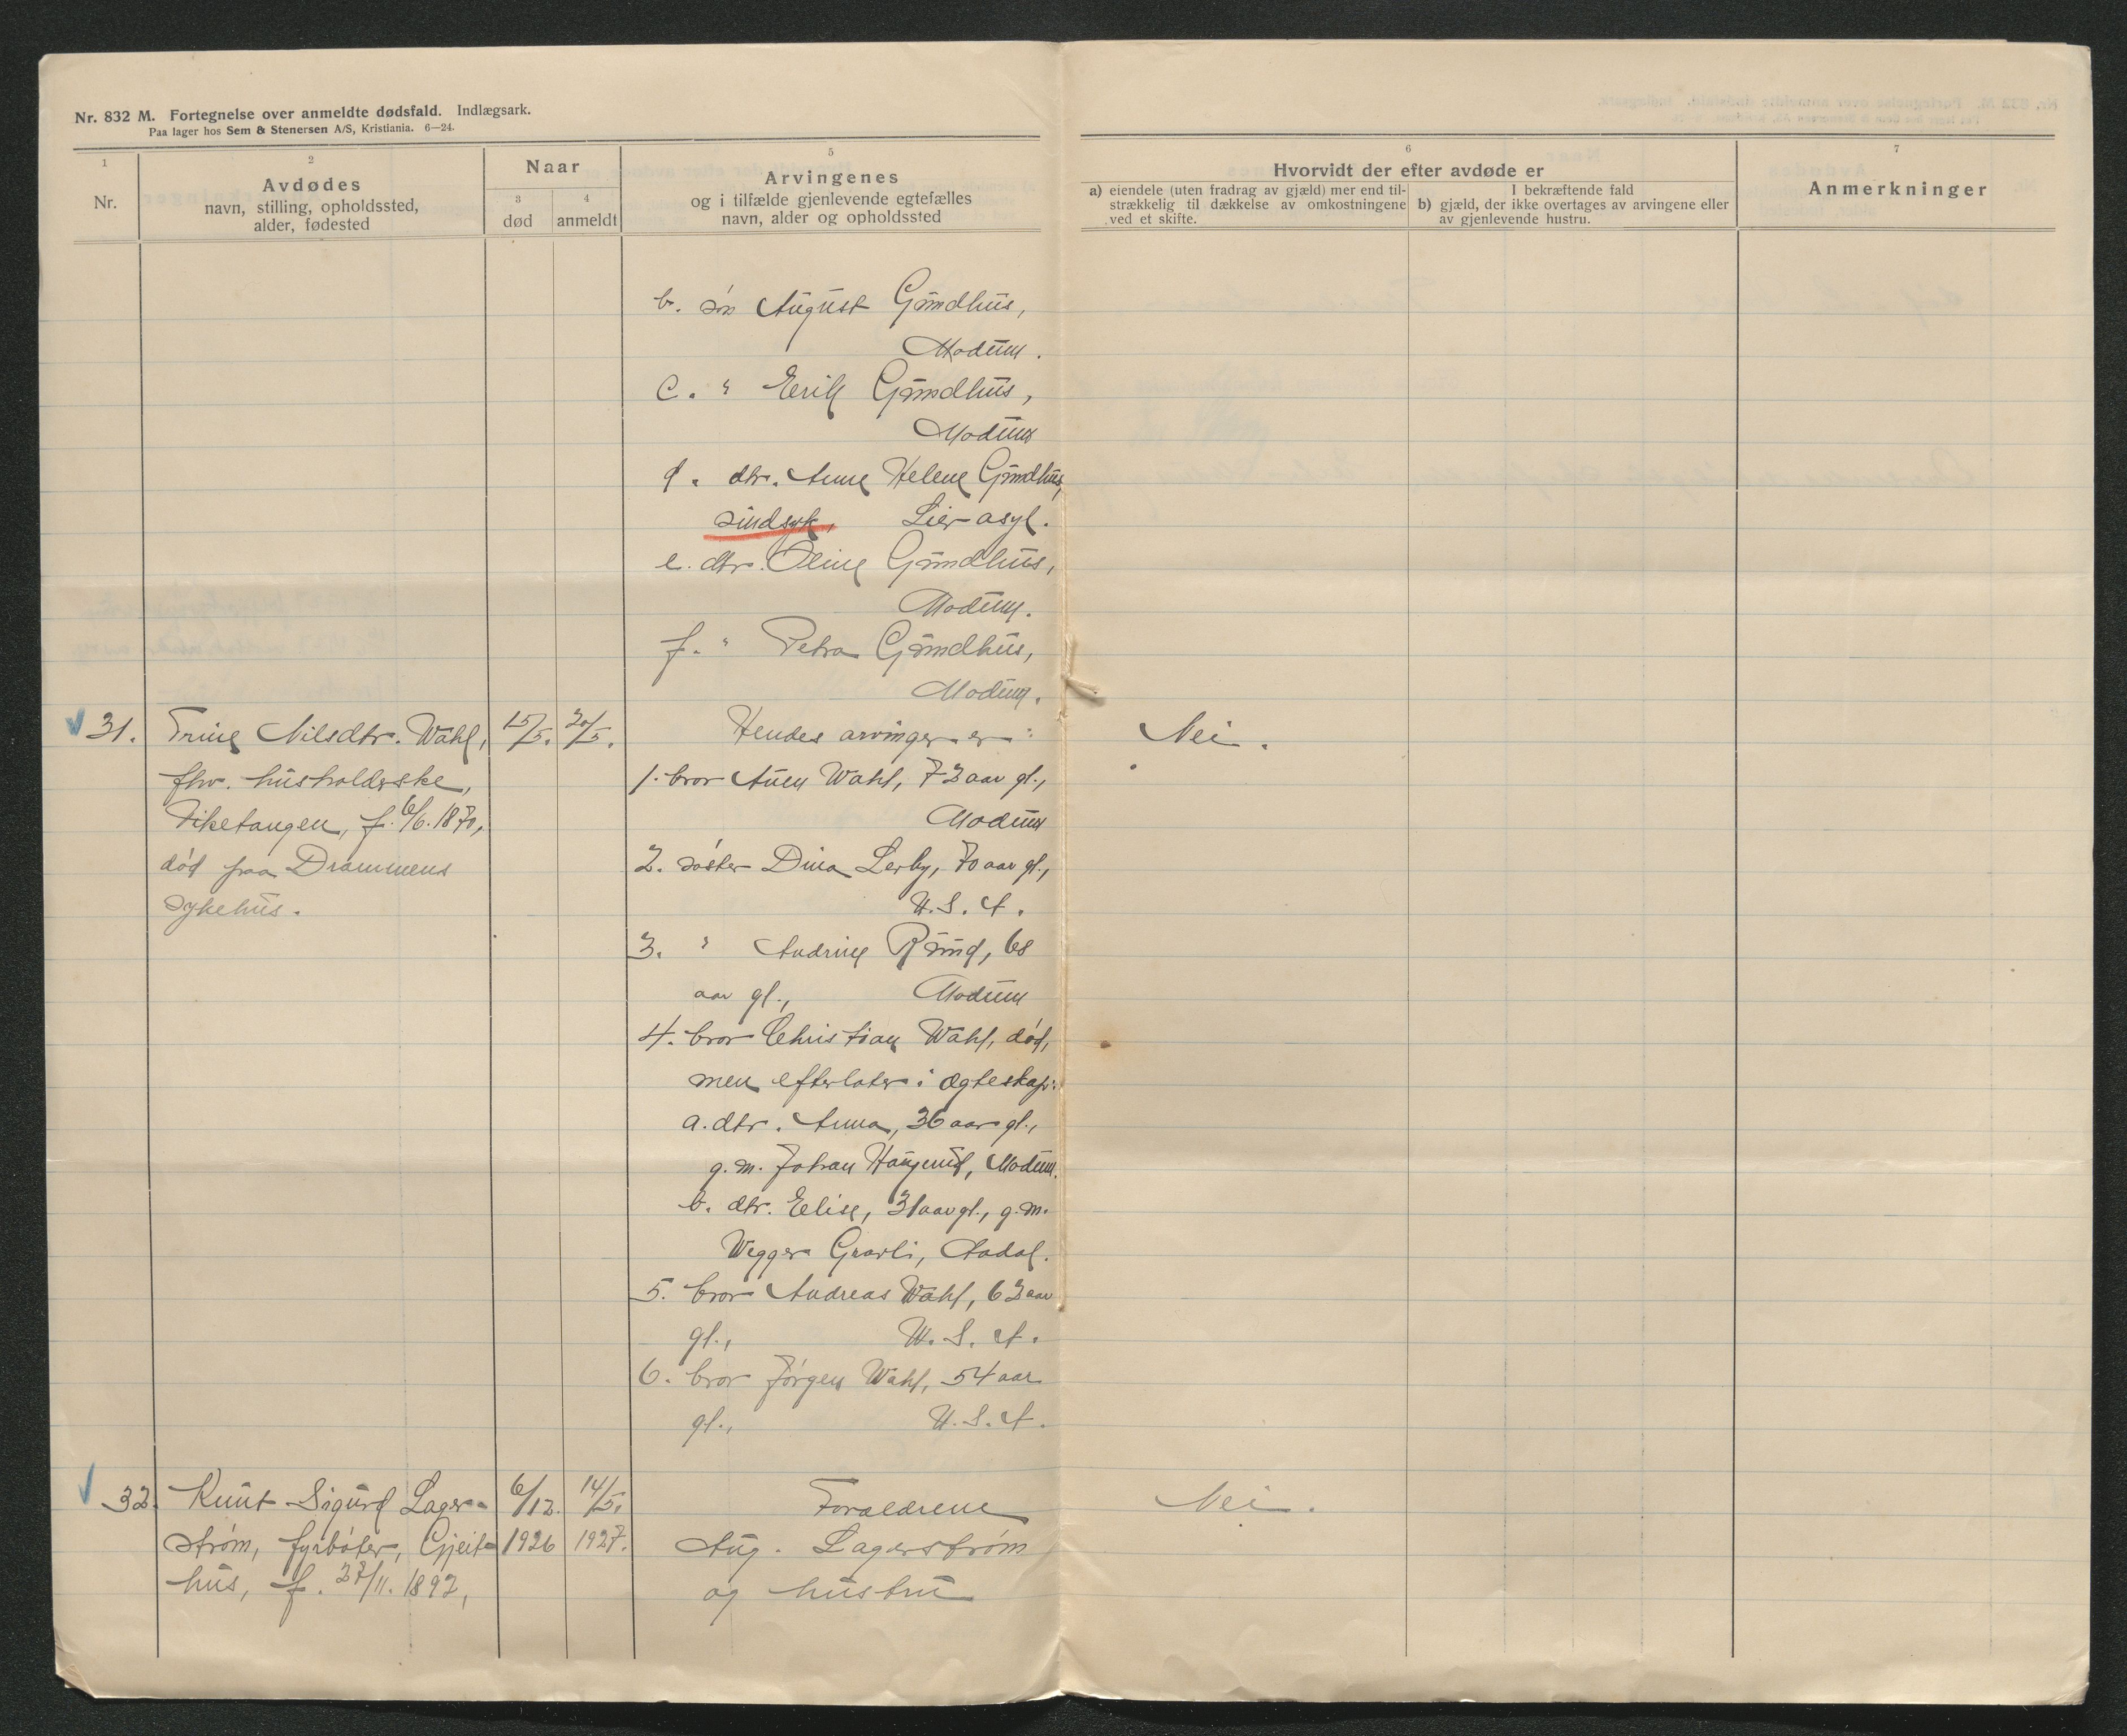 Nr. 832 M. Fortegnelse over anmeldte dødsfald. Indlægsark.
Paa lager hos Sem & Stenersen A/S, Kristiania. 6—24.
1
Nr.
2
Avdødes
navn, stilling, opholdssted,
alder, fødested
Naar
3
død
4
anmeldt
5
Arvingenes
og i tilfælde gjenlevende egtefælles
navn, alder og opholdssted
6
Hvorvidt der efter avdøde er
a) eiendele (uten fradrag av gjæld) mer end til-
strækkelig til dækkelse av omkostningene
ved et skifte.
I bekræftende fald
b) gjæld, der ikke overtages av arvingene eller
av gjenlevende hustru.
7
Anmerkninger
b. søn August Grøndhus,
Modum.
c. " Erik Grøndhus,
Modum
d. dtr. Anne Helene Grøndhus,
sindsyk, Lier asyl.
e. dtr. Oline Grøndhus,
Modum.
f. " Petra Grøndhus,
Modum.
31. Trine Nilsdtr. Wahl, 15/5. 20/5. Hendes arvinger er: Nei.
fhv. husholderske, 1. bror Auen Wahl, 72 aar gl.,
Viketangen, f. 6/6. 1870, Modum
død paa Drammens 2. søster Dina Lerby, 70 aar gl.,
sykehus. U.S.A.
3. " Andrine Rund, 68
aar gl., Modum
4. bror Christian Wahl, død,
men efterlater i ægteskap:
a. dtr. Anna, 36 aar gl.,
g.m. Johan Haugerud, Modum.
b. dtr. Elise, 31 aar gl., g.m.
Wegger Gravli, Aadal.
5. bror Andreas Wahl, 62 aar
gl., U.S.A.
6. bror Jørgen Wahl, 54 aar
gl., U.S.A.
32. Knut Sigurd Lager- 6/12. 14/5. Foraeldrene Nei.
strøm, fyrbøter, Gjeit- 1926 1927. Aug. Lagerstrøm
hus, f. 27/11. 1892, og hustru